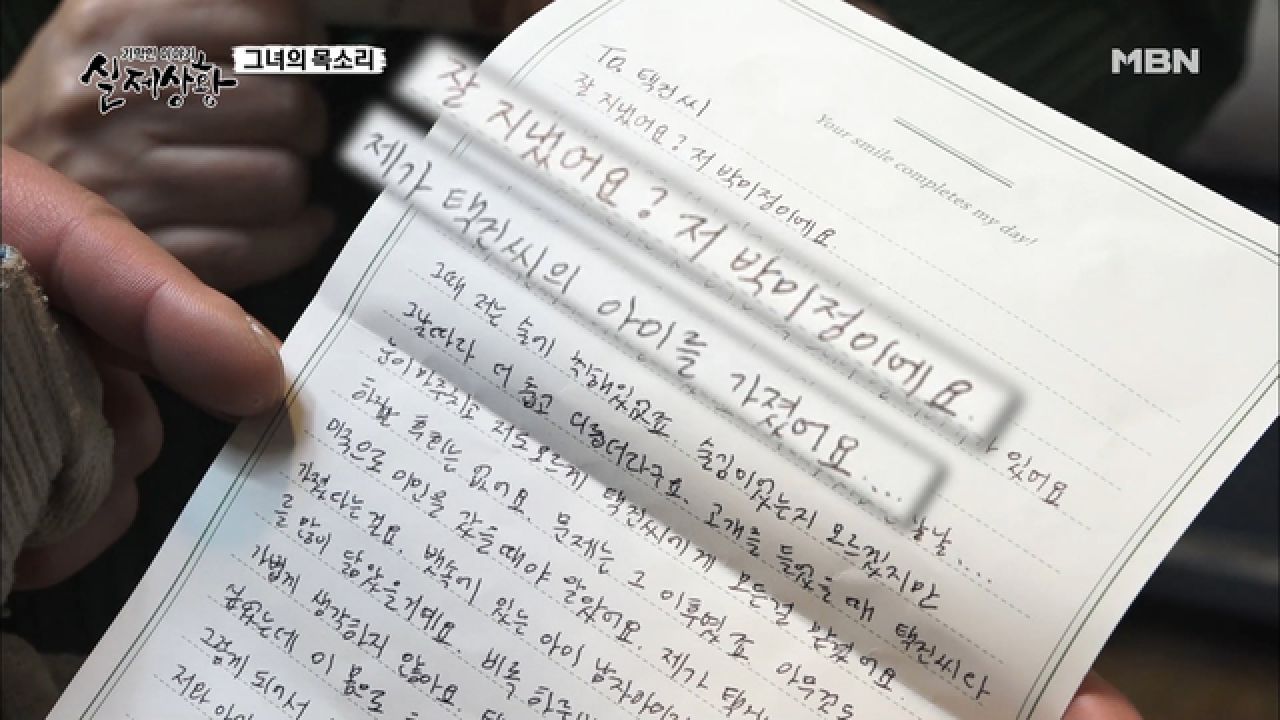 기막힌 이야기
실제상황
그녀의 목소리
MBN
Your smile completes my day!
To 택진씨
잘 지냈어요? 저 박미정이에요
잘 지냈어요? 저 박미정이에요.
제가 택진씨의 아이를 가졌어요....
있어요
그때 저는 술기 취해있었죠. 술김이었는지 모르겠지만
그날따라 더 춥고 다랐더라구요. 고개를 들었을 때 택진씨와
눈이 마주치고 저도 모르게 택진씨에게 모든걸 맡겼어요
하지만 후회는 없어요. 문제는 그 이후였죠 아무것도
미국으로 이민을 갔을때야 알았어요. 제가 택
가졌다는걸요. 뱃속에 있는 아이 남자아이
를 많이 닮았을거예요. 비록 하룻
가볍게 생각하지 않아요
이 몸으로
그렇게 되어서
저와 아이